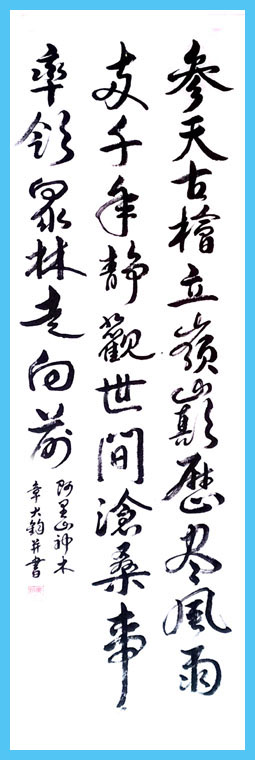 參天古檜立嶺巔歷盡風雨
幾千年靜觀世間滄桑事
率領眾林走向前
阿里山神木
章大鈞并書